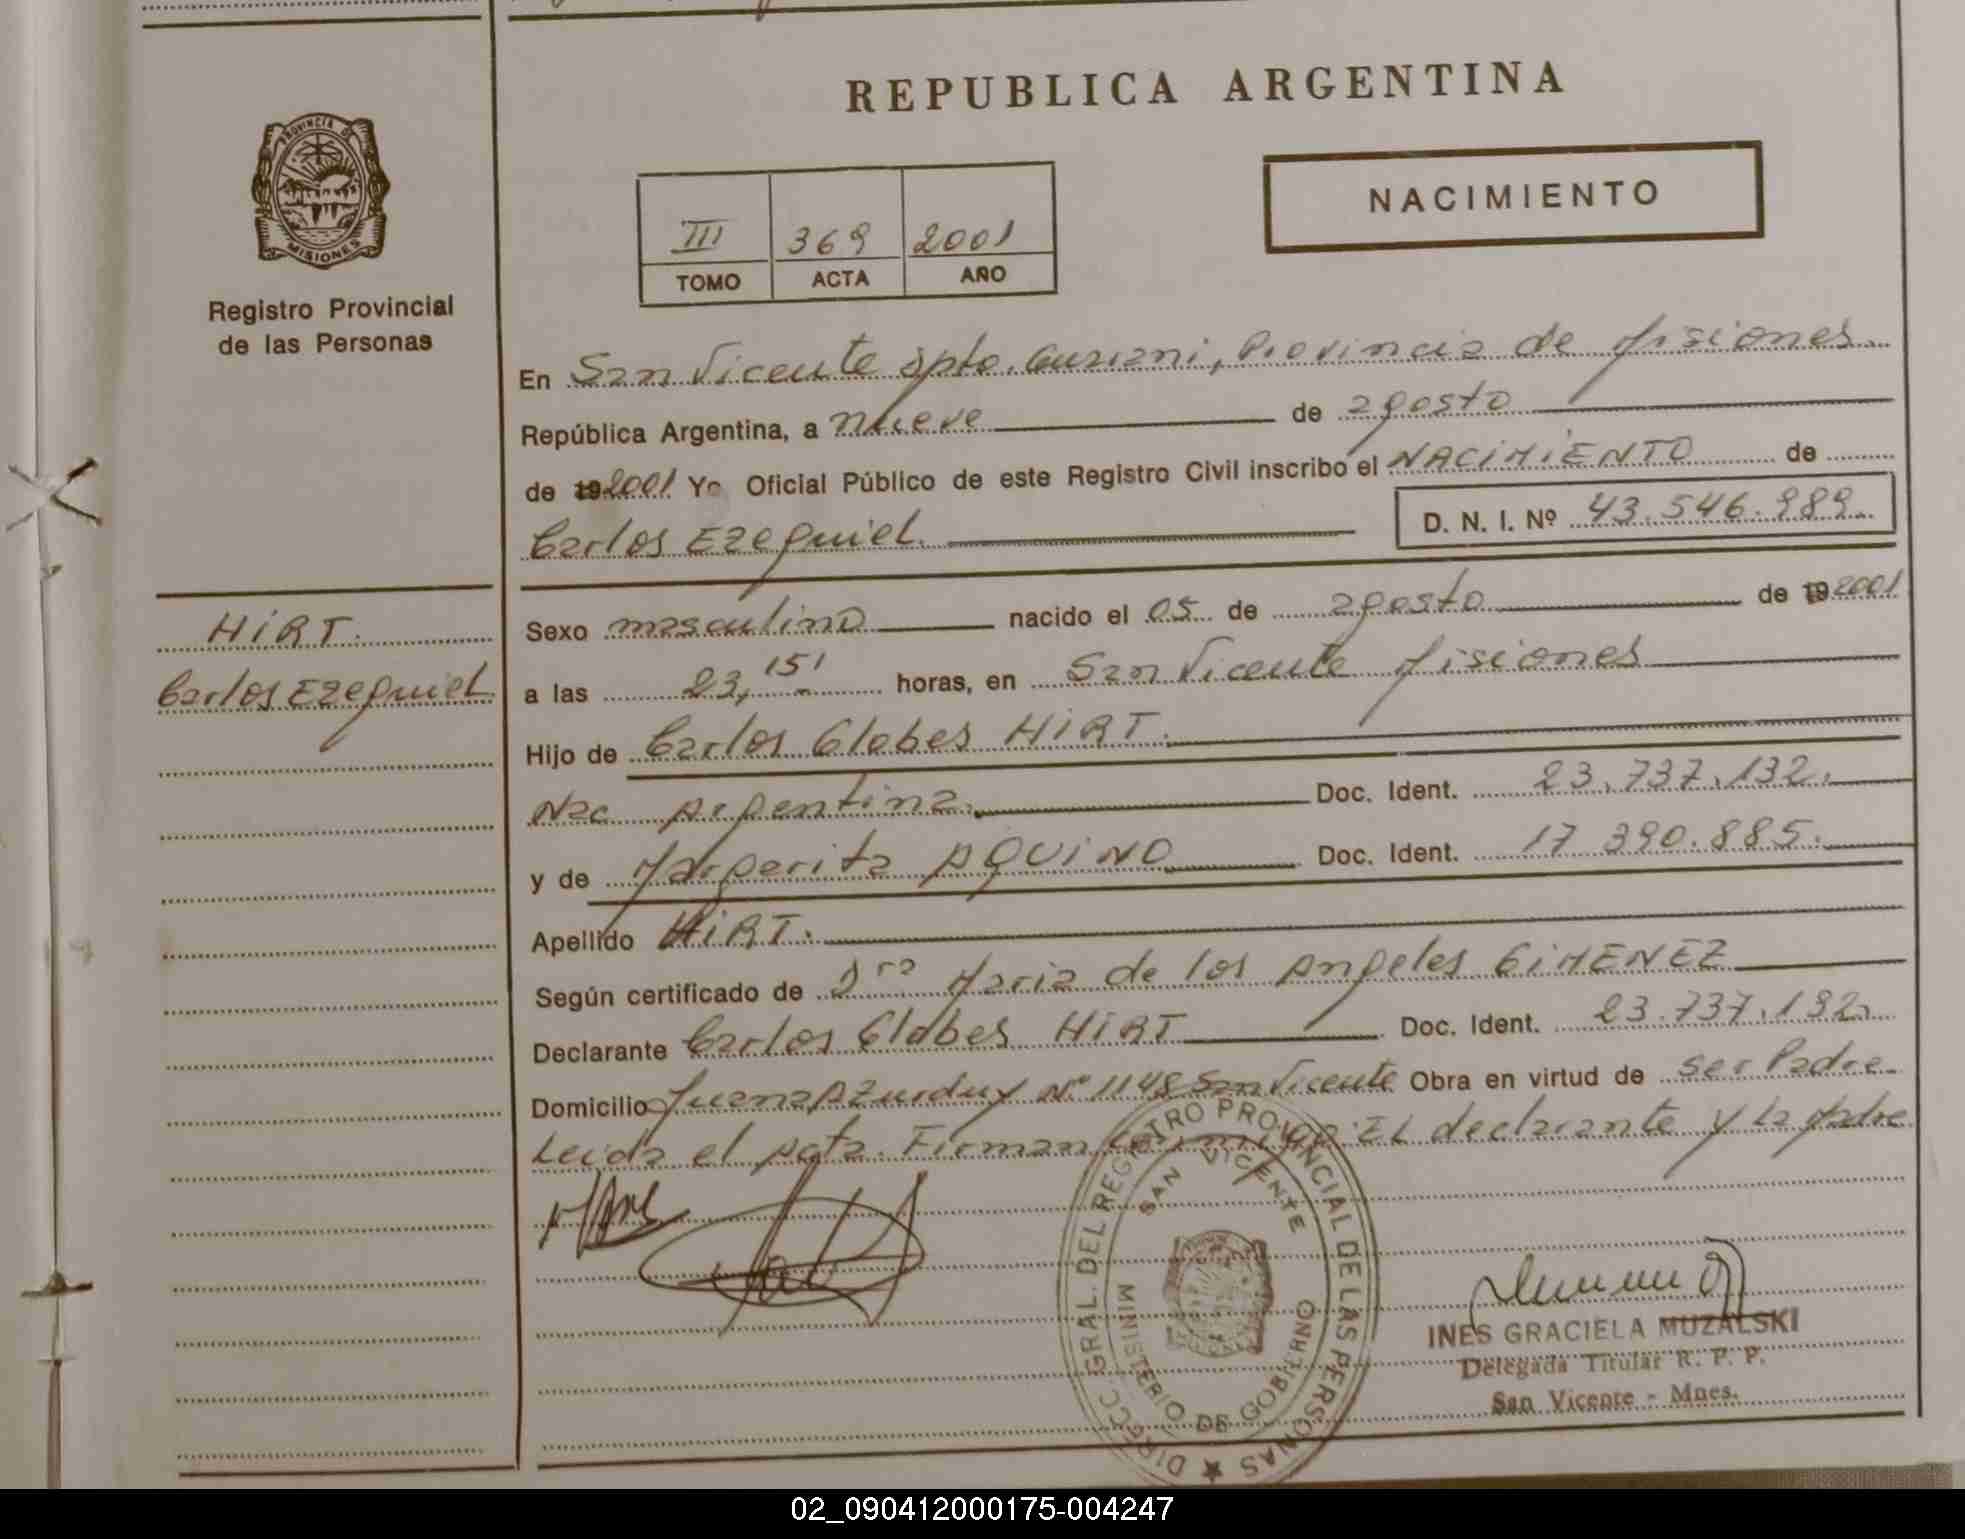 REPUBLICA ARGENTINA
PROVINCIA DE MISIONES
Registro Provincial
de las Personas
NACIMIENTO
III 369 2001
TOMO ACTA AÑO
En San Vicente Dpto. Guarani, Provincia de Misiones.
República Argentina, a nueve de agosto
de 192001 Yo Oficial Público de este Registro Civil inscribo el NACIMIENTO de
Carlos Ezequiel. D. N. I. Nº 43.546.989
HIRT.
Carlos Ezequiel
Sexo masculino nacido el 05 de agosto de 192001
a las 23,15' horas, en San Vicente Misiones
Hijo de Carlos Clobes HIRT.
Nac Argentina. Doc. Ident. 23.737.132.
y de Margarita AQUINO Doc. Ident. 17 390.885.
Apellido HIRT.
Según certificado de Dra Maria de los Angeles GIMENEZ
Declarante Carlos Clobes HIRT Doc. Ident. 23.737.132.
Domicilio Juana Azurduy Nº 1148 San Vicente Obra en virtud de ser Padre
Leida el Acta. Firman conmigo: El declarante y la Madre
DIRECC. GRAL. DEL REGISTRO PROVINCIAL DE LAS PERSONAS
SAN VICENTE
MINISTERIO DE GOBIERNO
INES GRACIELA MUZALSKI
Delegada Titular R. P. P.
San Vicente - Mnes.
02_090412000175-004247